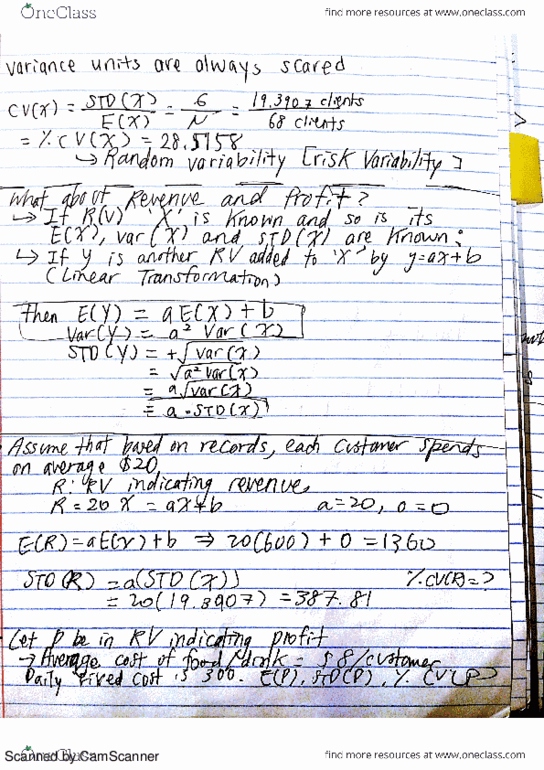 OneClass
find more resources at www.oneclass.com
variance units are always scared
CV(X) = STD(X)/E(X) = σ/N = 19.3907 clients/68 clients
= % CV(X) = 28.5158
↳ Random variability [risk Variability]
What about Revenue and Profit?
↳ If R(V) 'X' is known and so is its
E(X), var(X) and STD(X) are known:
↳ If Y is another RV added to 'X' by y=ax+b
(Linear Transformation)
then E(Y) = aE(X) + b
Var(Y) = a² Var(X)
STD(Y) = +√var(X)
= √a² var(X)
= a√var(X)
= a · STD(X)
Assume that based on records, each customer spends
on average $20,
R: RV indicating revenue,
R = 20 X = ax+b a=20, 0=0
E(R) = aE(x) + b ⇒ 20(600) + 0 = 1360
STD(R) = a(STD(X)) % CV(R) = ?
= 20(19.3907) = 387.81
Let P be in RV indicating profit
→ Average cost of food/drink = $8/customer
Daily Fixed cost is 300. E(P), STD(P), % CV(P)
Scanned by CamScanner
find more resources at www.oneclass.com